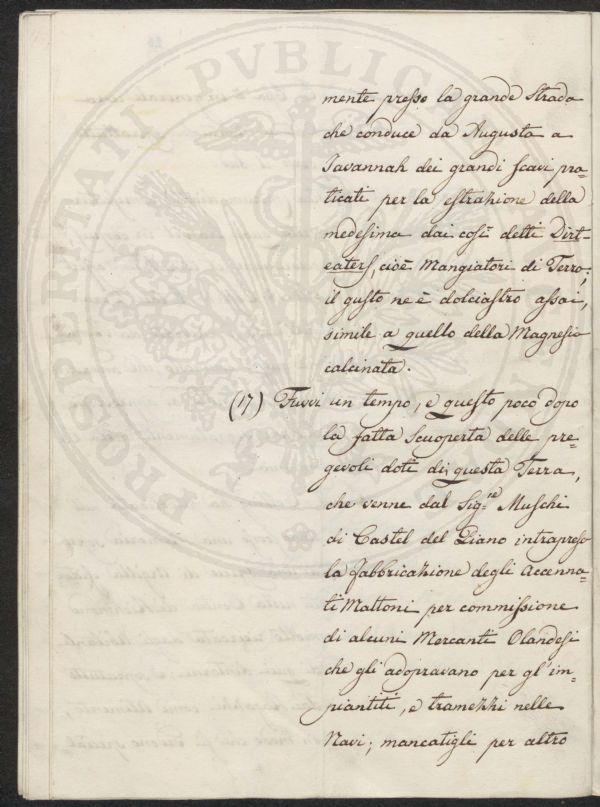 PROSPERITATI PVBLICAE
mente presso la grande Strada
che conduce da Augusta a
Savannah dei grandi scavi pra-
ticati per la estrazione della
medesima dai così detti Dirt-
eaters, cioè Mangiatori di Terra;
il gusto ne è dolciastro assai,
simile a quello della Magnesia
calcinata.
(17) Fuvvi un tempo, e questo poco dopo
la fatta Scuoperta delle pre-
gevoli doti di questa Terra,
che venne dal Sig.re Muschi
di Castel del Piano intrapreso
la fabbricazione degli accenna-
ti Mattoni per commissione
di alcuni Mercanti Olandesi
che gli adopravano per gl'im-
piantiti, e tramezzi nelle
Navi; mancatigli per altro